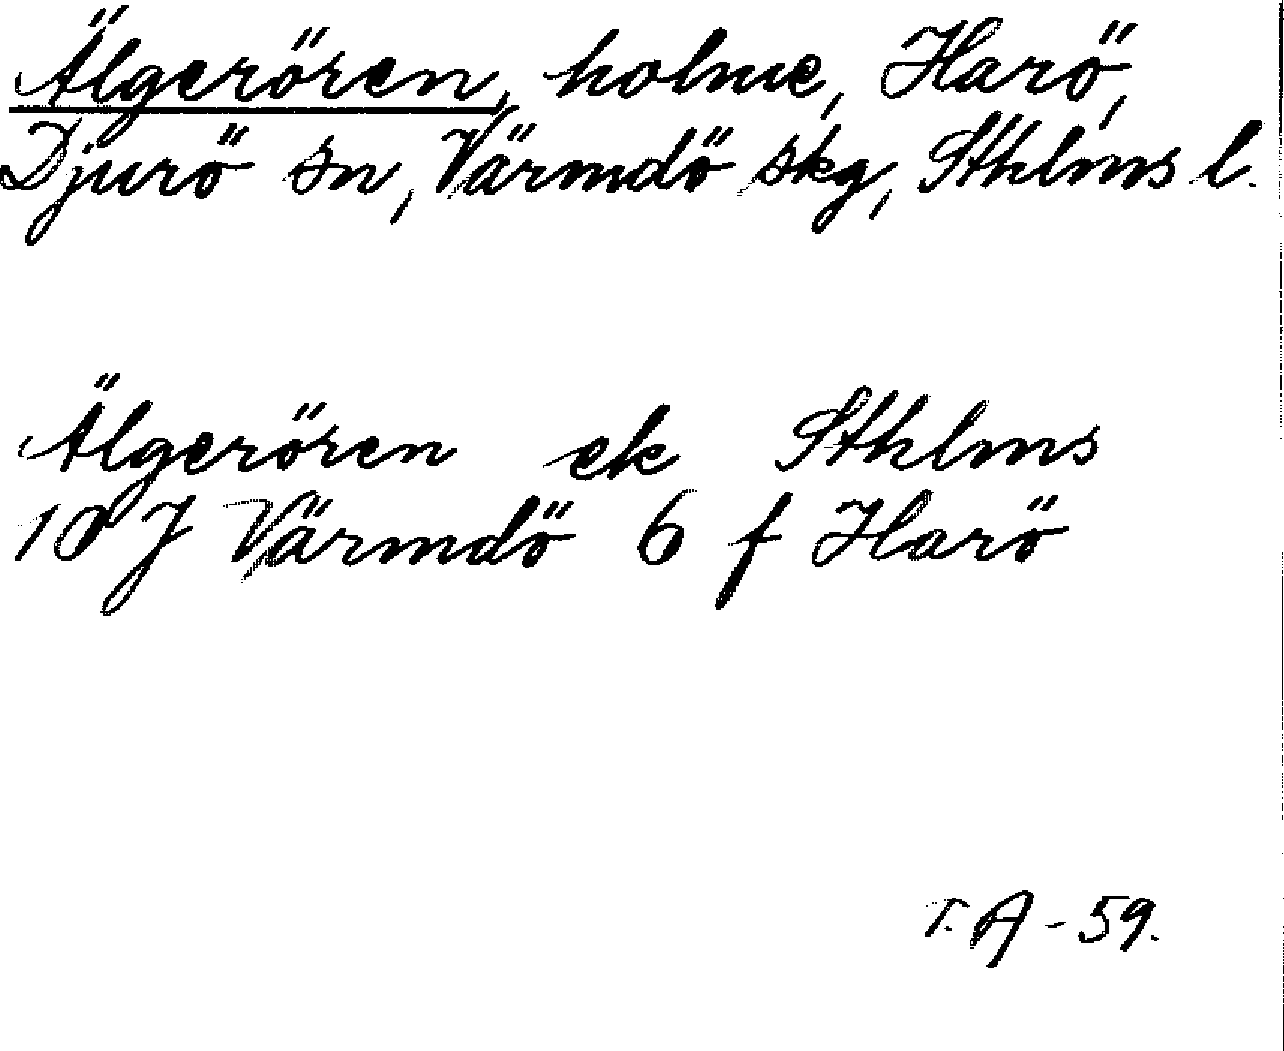 Älgerören, holme, Harö,
Djurö sn, Värmdö skg, Sthlms l.
Älgerören ek Sthlms
10 J Värmdö 6 f Harö
T. A - 59.